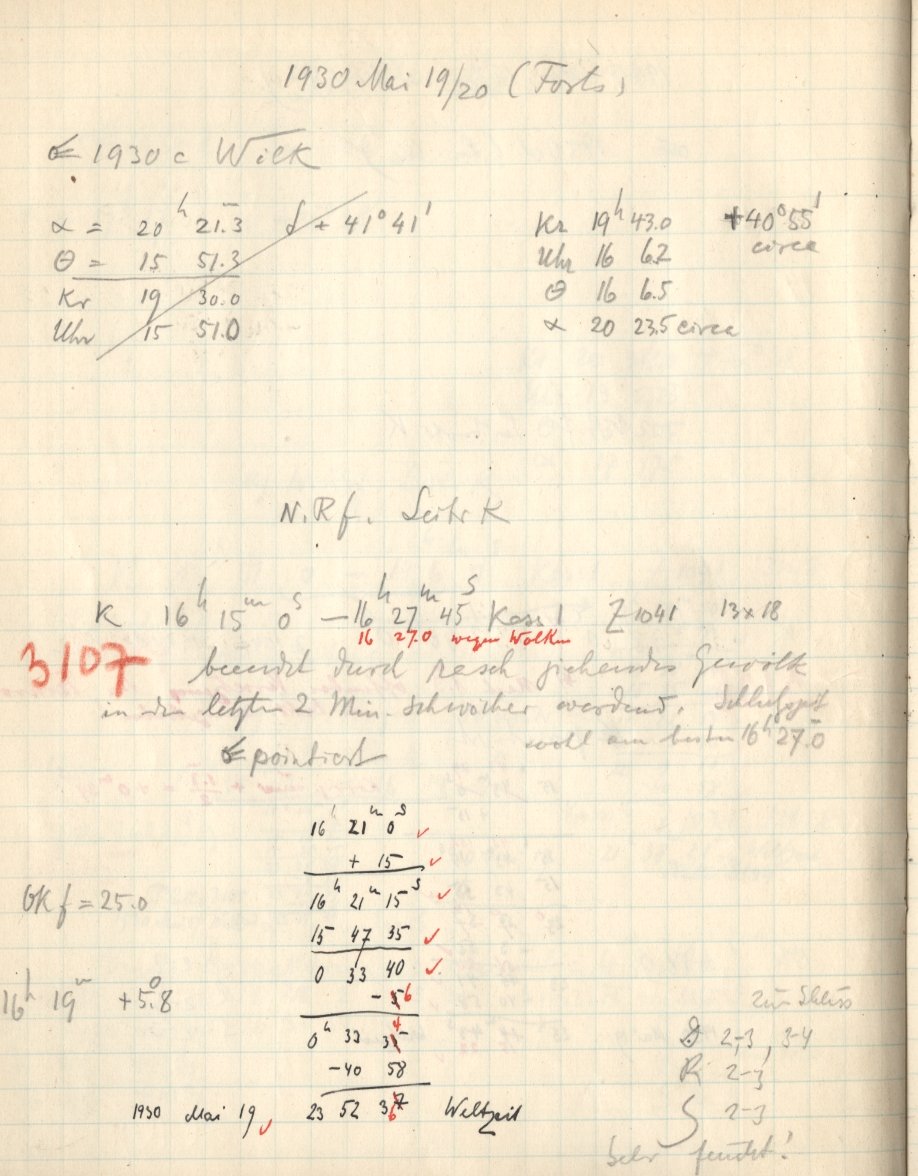 1930 Mai 19/20 (Forts)
☄ 1930 c Wilk
α = 20ʰ 21.3ᵐ δ + 41° 41'
θ = 15 51.3
Kr 19 30.0
Uhr 15 51.0
Kr 19ʰ 43.0 +40° 55'
circa
Uhr 16 6.2
θ 16 6.5
α 20 23.5 circa
N. Rf. Seite K
K 16ʰ 15ᵐ 0ˢ — 16ʰ 27ᵐ 45ˢ Kass 1 Z 1041 13x18
16 27.0 wegen Wolken
3107
beendet durch rasch ziehendes Gewölk
in den letzten 2 Min. schwächer werdend. Schlußzeit
wohl am besten 16ʰ 27.0ᵐ
☄ pointiert
16ʰ 21ᵐ 0ˢ ✓
+ 15 ✓
OKf = 25.0
16ʰ 21ᵐ 15ˢ ✓
15 47 35 ✓
0 33 40 ✓
16ʰ 19ᵐ +5.8°
- 5 6
0ʰ 33 35 4
-40 58
1930 Mai 19 ✓ 23 52 37 6 Weltzeit
zum Schluss
D 2-3, 3-4
R 2-3
S 2-3
Sehr feucht!